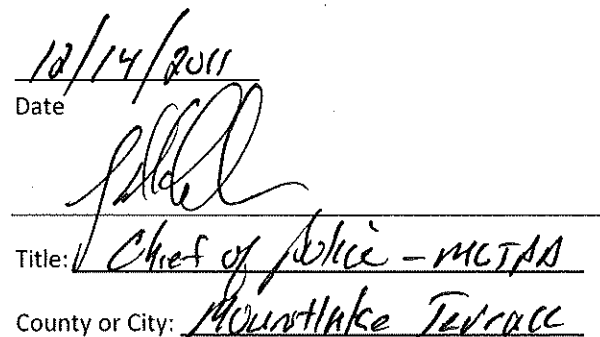 12/14/2011
Date
Title: Chief of Police -
County or City: Mountlake Terrace